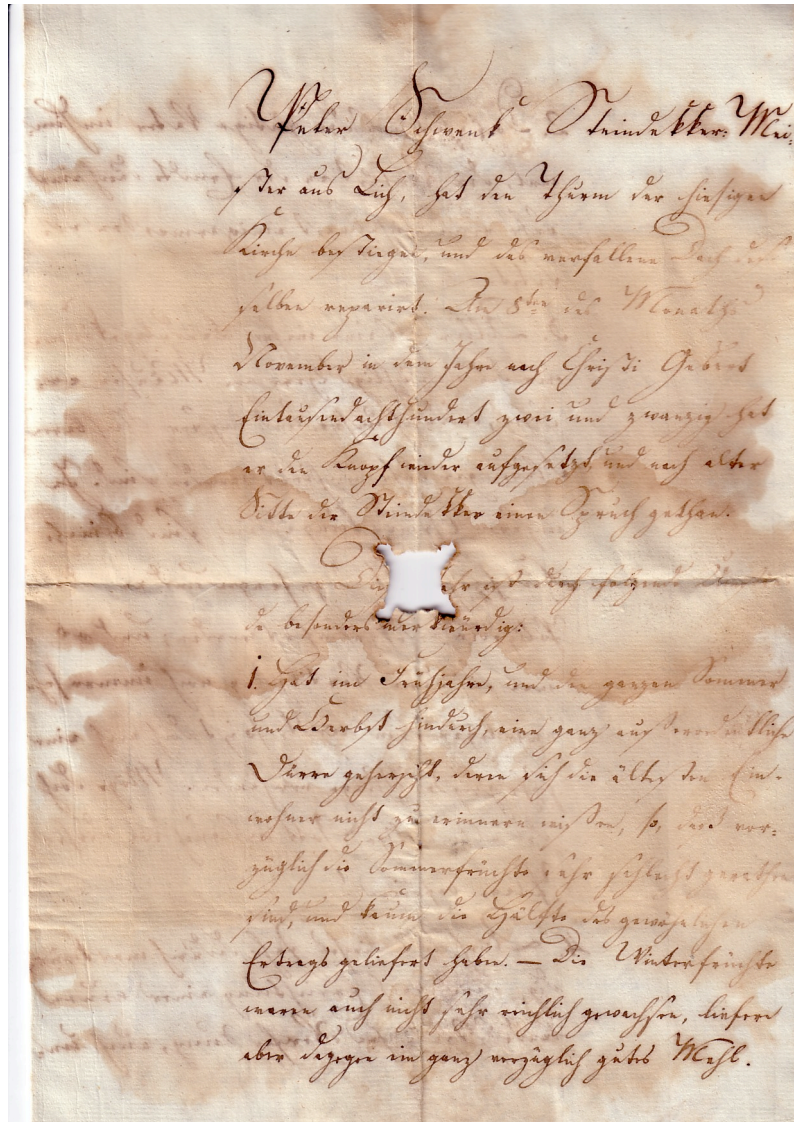 Peter Schwenk Steindekker-Mei-
ster aus Lich, hat den Thurm der hiesigen
Kirche bestiegen, und das verfallene Dach des-
selben reparirt. Am 8ten des Monaths
November in dem Jahre nach Christi Geburt
Eintausendachthundert zwei und zwanzig hat
er den Knopf wieder aufgesetzt, und nach alter
Sitte der Steindekker einen Spruch gethan.
ist durch folgende
de besonders merkwürdig:
1. Hat im Frühjahre, und den ganzen Sommer
und Herbst hindurch, eine ganz außerordentliche
Dürre geherrscht, deren sich die ältesten Ein-
wohner nicht zu erinnern wißen, so, daß vor-
züglich die Sommerfrüchte sehr schlecht gerathen
sind, und kaum die Hälfte des gewöhnlichen
Ertrags geliefert haben. — Die Winterfrüchte
waren auch nicht sehr reichlich gewachsen, liefern
aber dagegen ein ganz vorzüglich gutes Mehl.